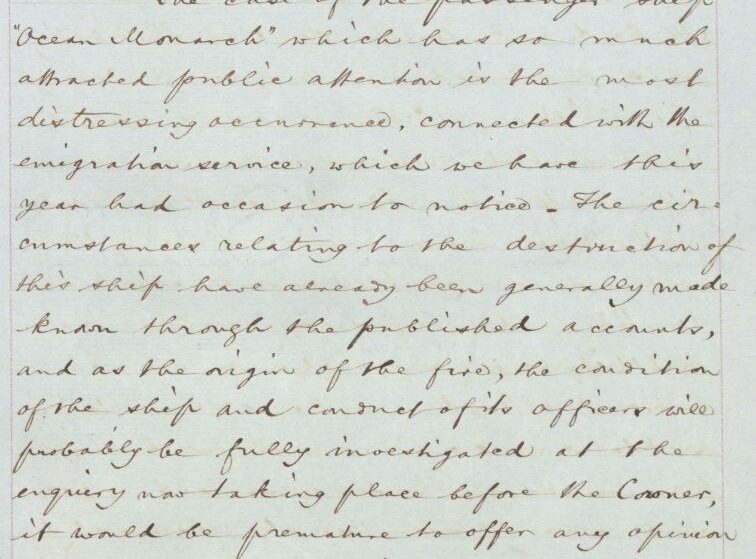 The case of the passenger ship
"Ocean Monarch" which has so much
attracted public attention is the most
distressing occurrence, connected with the
emigration service, which we have this
year had occasion to notice - The cir=
cumstances relating to the destruction of
this ship have already been generally made
known through the published accounts,
and as the origin of the fire, the condition
of the ship and conduct of its officers will
probably be fully investigated at the
enquiry now taking place before the Coroner,
it would be premature to offer any opinion